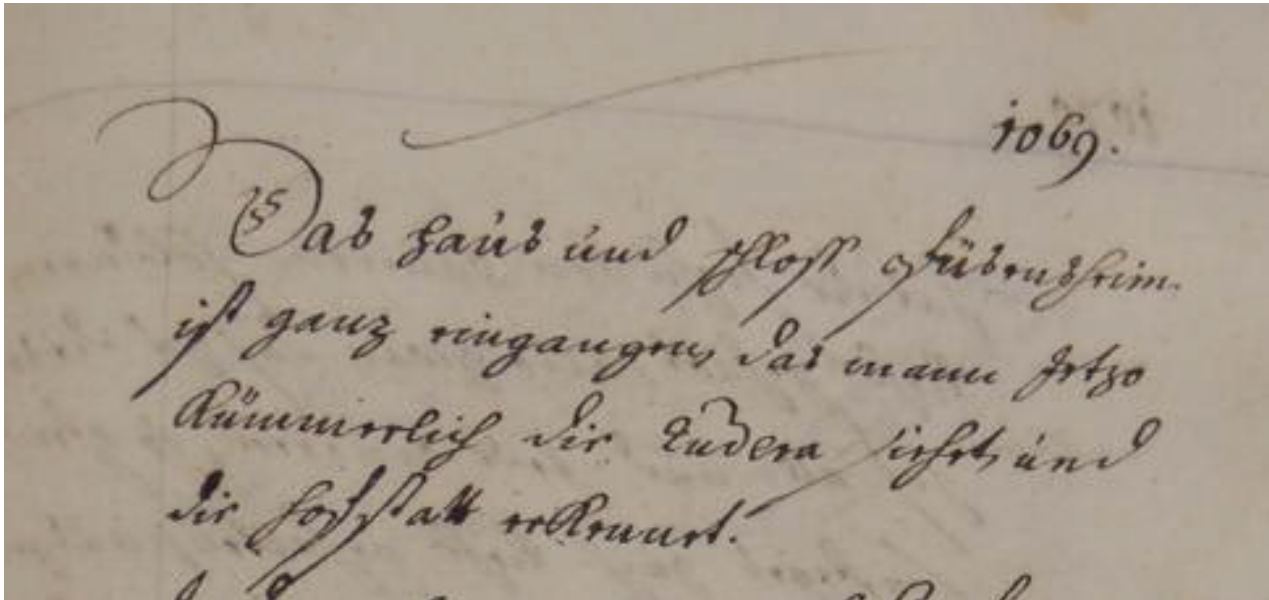 1069.
Das Haus und schloss
ist ganz eingangen, das mann Jetzo
Kümmerlich die Rudera siehet, und
die hoffstatt erkennet.